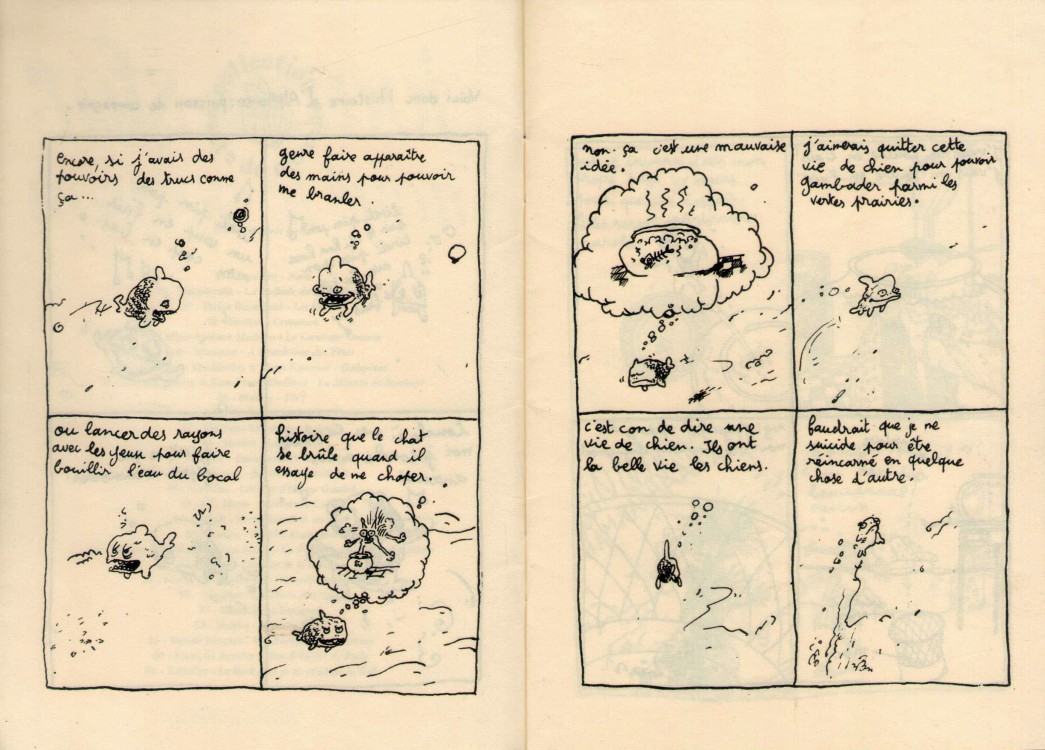 encore, si j'avais des
pouvoirs des trucs comme
ça...
genre faire apparaître
des mains pour pouvoir
me branler.
ou lancer des rayons
avec les yeux pour faire
bouillir l'eau du bocal
histoire que le chat
se brûle quand il
essaye de me choper.
non. ça c'est une mauvaise
idée.
j'aimerais quitter cette
vie de chien pour pouvoir
gambader parmi les
vertes prairies.
c'est con de dire une
vie de chien. Ils ont
la belle vie les chiens.
faudrait que je me
suicide pour être
réincarné en quelque
chose d'autre.